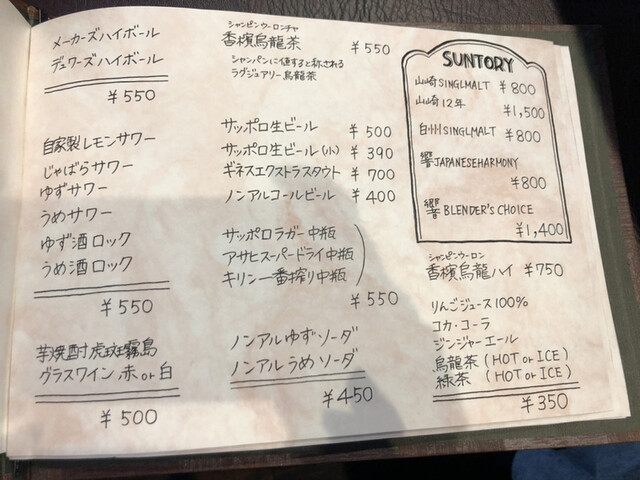 メーカーズハイボール
デュワーズハイボール
¥550
自家製レモンサワー
じゃばらサワー
ゆずサワー
うめサワー
ゆず酒ロック
うめ酒ロック
¥550
芋焼酎 虎斑霧島
グラスワイン 赤 or 白
¥500
シャンピンウーロンチャ
香檳烏龍茶 ¥550
シャンパンに値すると称される
ラグジュアリー烏龍茶
サッポロ生ビール ¥500
サッポロ生ビール(小) ¥390
ギネスエクストラスタウト ¥700
ノンアルコールビール ¥400
サッポロラガー中瓶
アサヒスーパードライ中瓶
キリン一番搾り中瓶
¥550
ノンアルゆずソーダ
ノンアルうめソーダ
¥450
SUNTORY
山崎SINGLMALT ¥800
山崎12年
¥1,500
白州SINGLMALT ¥800
響JAPANESEHARMONY
¥800
響BLENDER'S CHOICE
¥1,400
シャンピンウーロン
香檳烏龍ハイ ¥750
りんごジュース100%
コカ・コーラ
ジンジャーエール
烏龍茶(HOT or ICE)
緑茶(HOT or ICE)
¥350